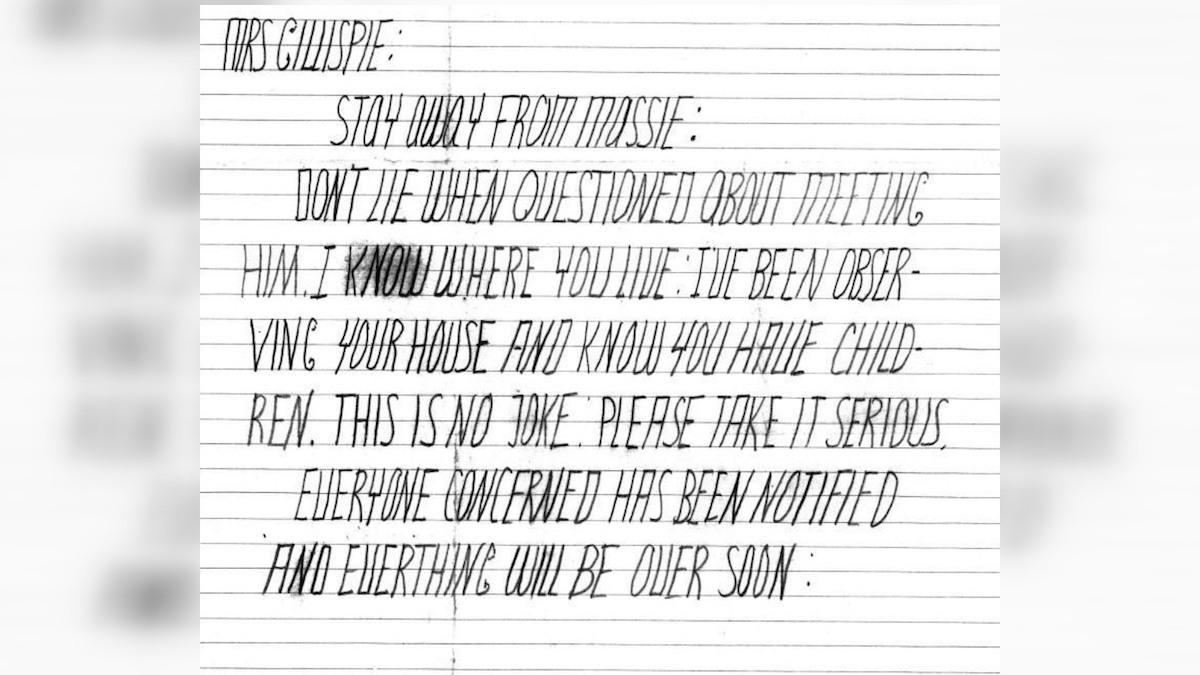 MRS GILLISPIE:
STAY AWAY FROM MASSIE:
DON'T LIE WHEN QUESTIONED ABOUT MEETING
HIM. I KNOW WHERE YOU LIVE: I'VE BEEN OBSER-
VING YOUR HOUSE AND KNOW YOU HAVE CHILD-
REN. THIS IS NO JOKE. PLEASE TAKE IT SERIOUS.
EVERYONE CONCERNED HAS BEEN NOTIFIED
AND EVERTHING WILL BE OVER SOON: